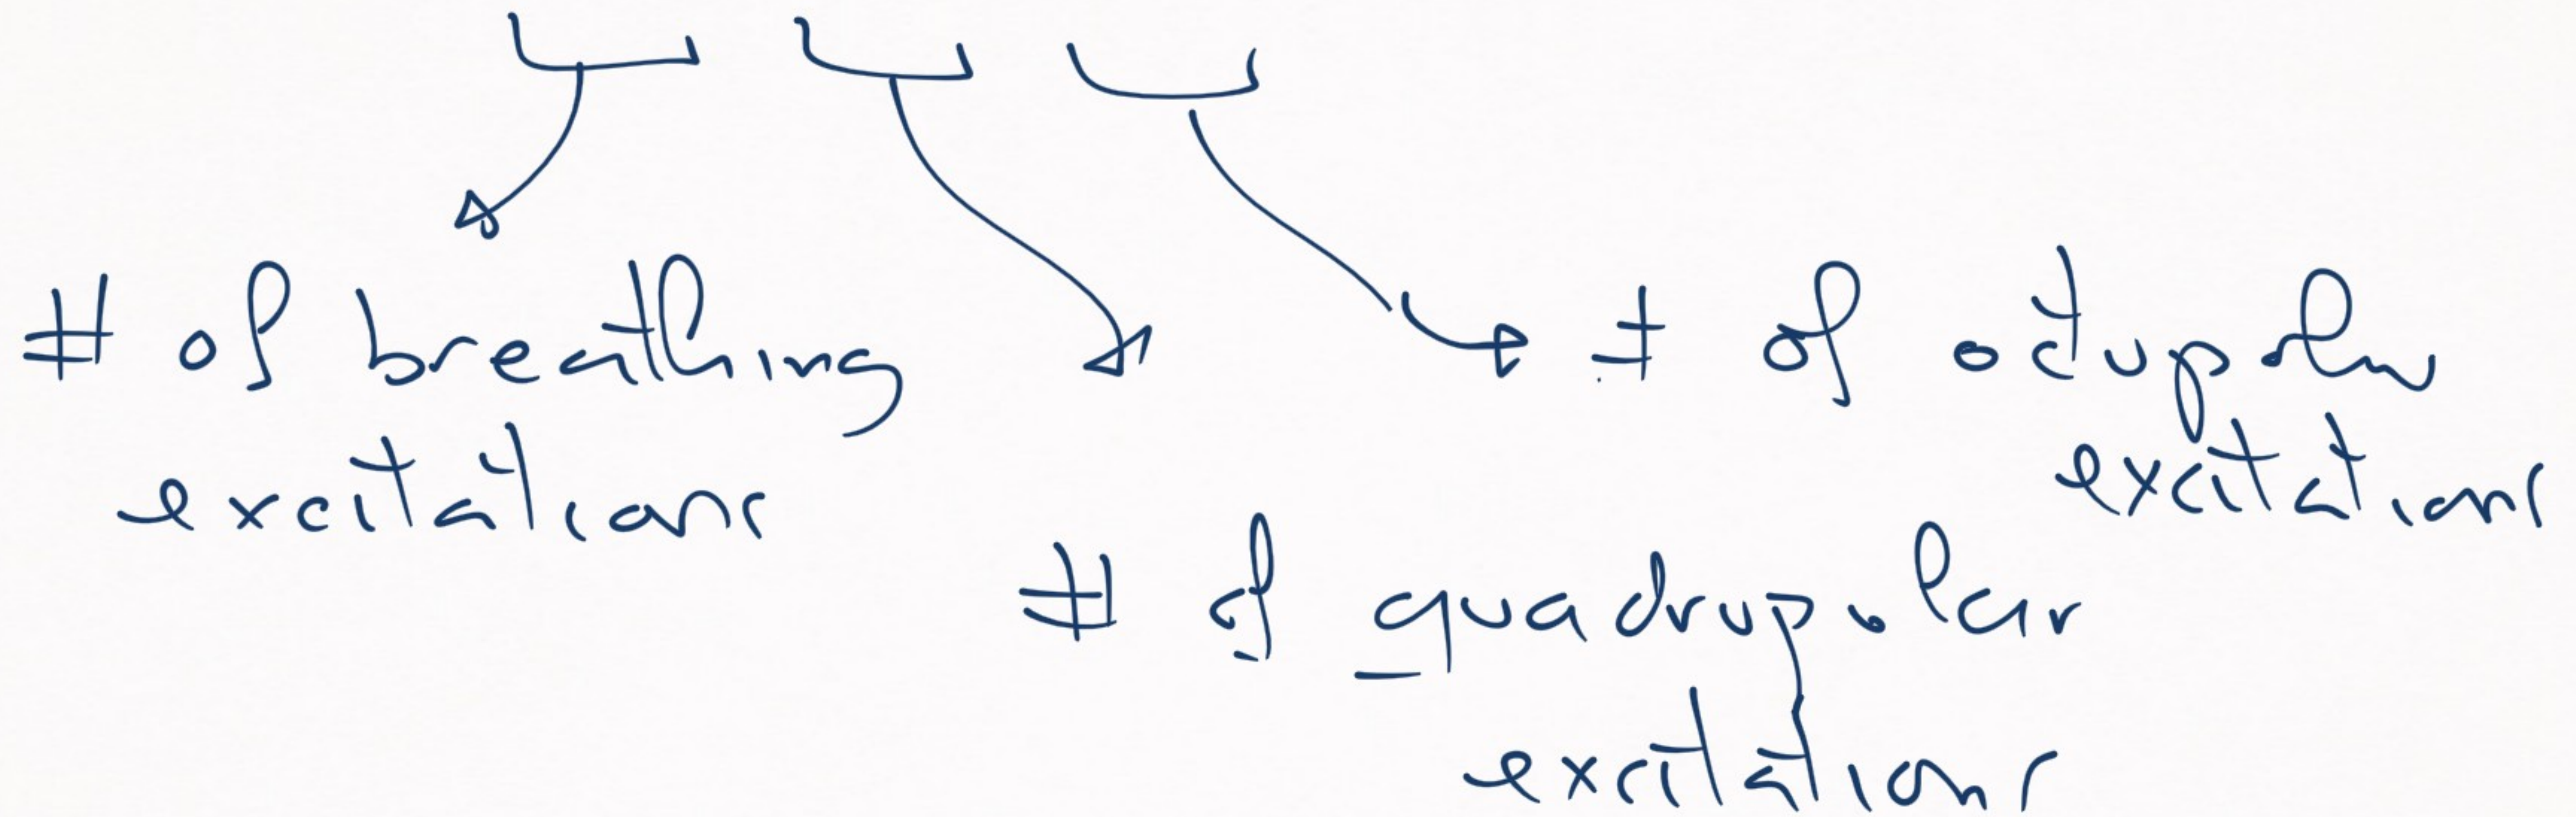 # of breathing
excitations
# of octupolar
excitations
# of quadrupolar
excitations